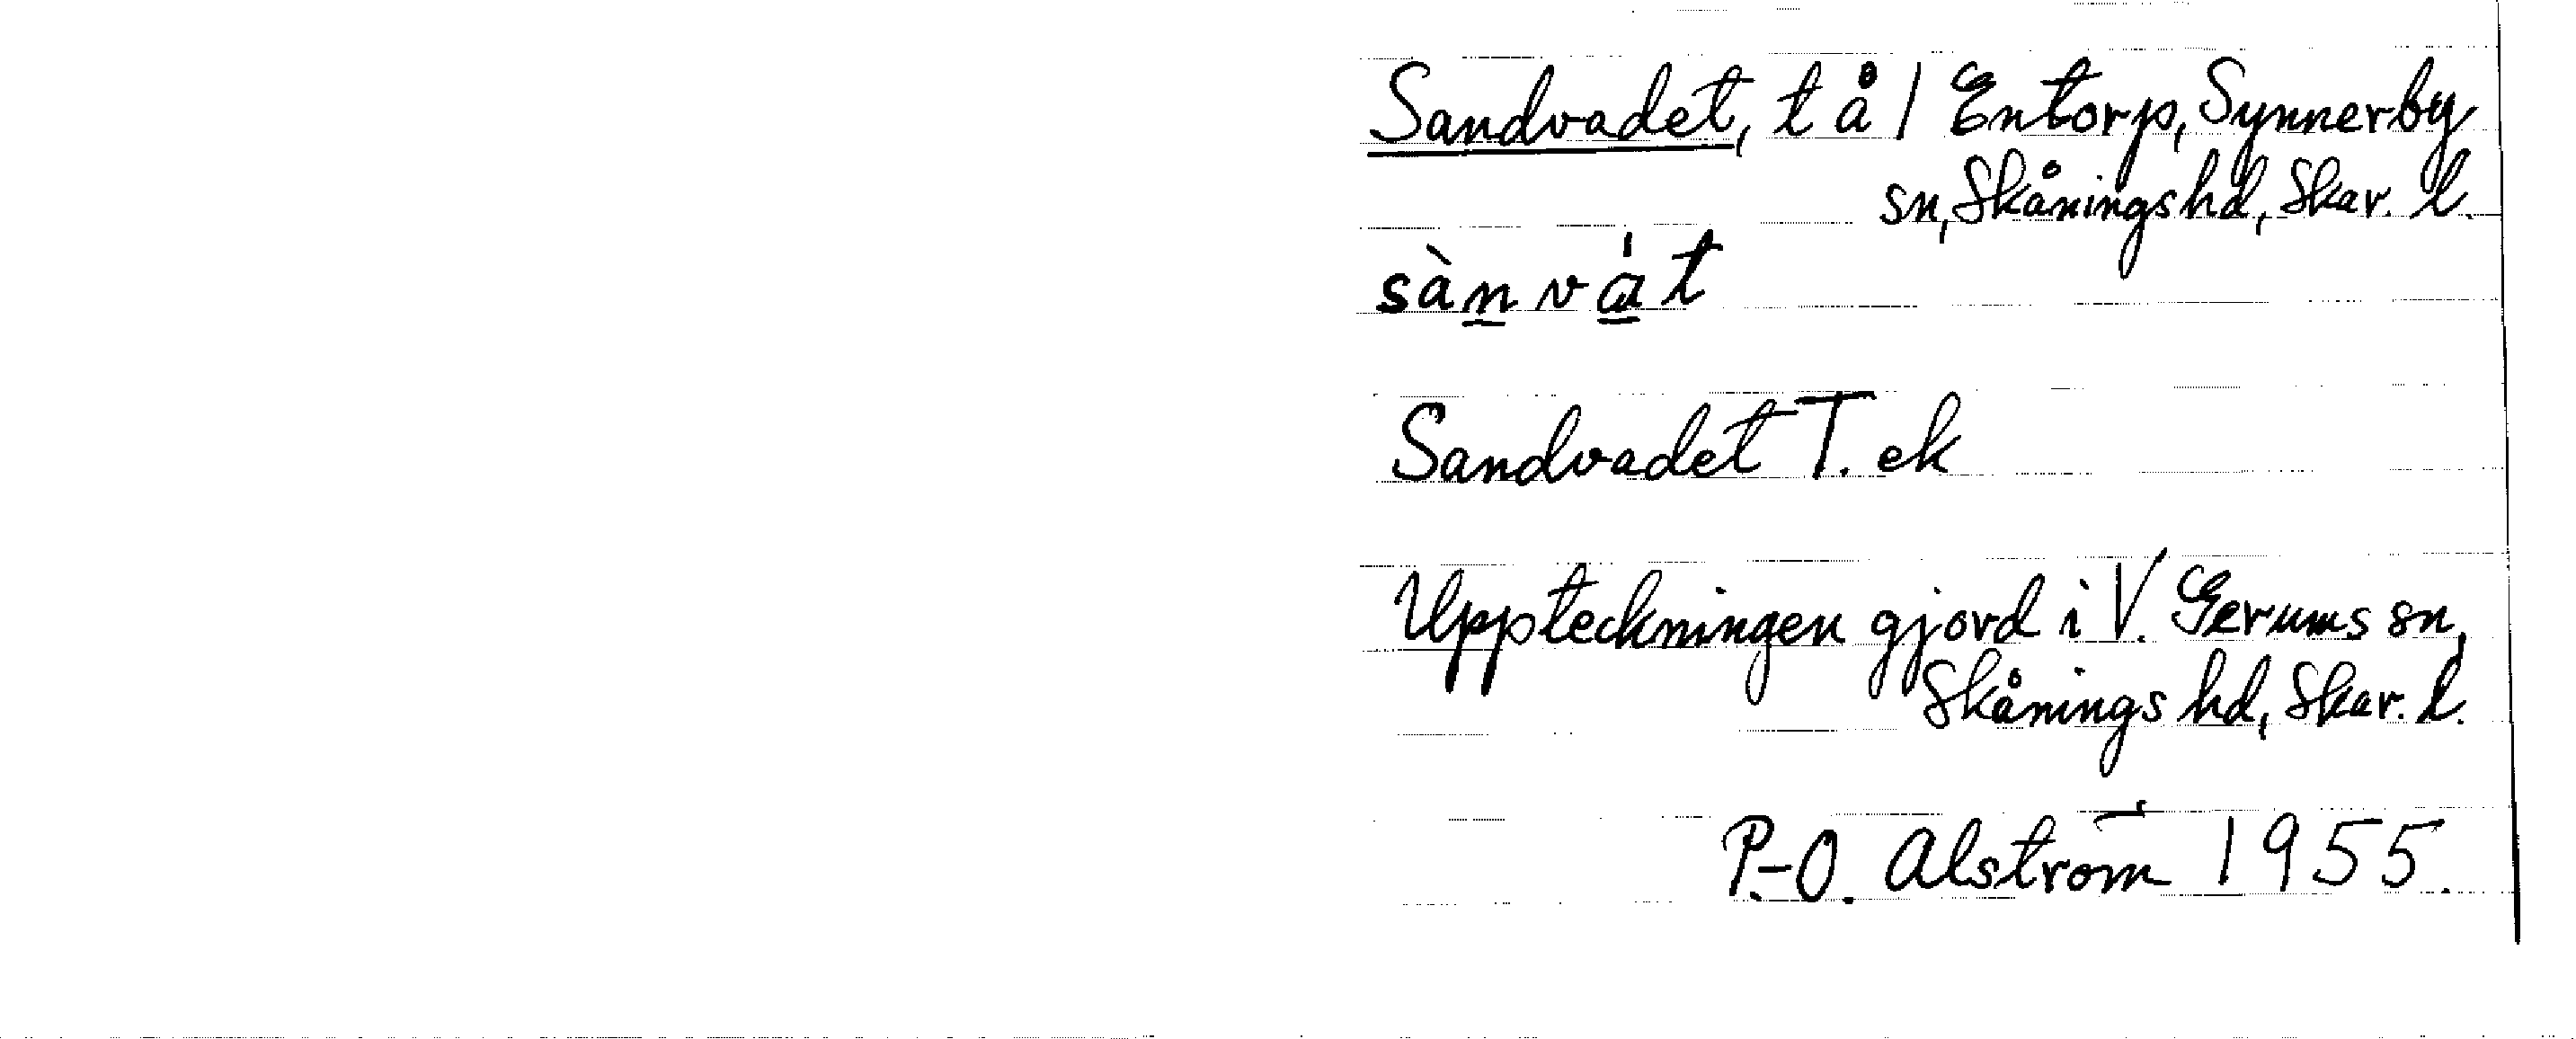 Sandvadet, t å / Entorp, Synnerby
sn, Skånings hd, Skar. l.
sànvát
Sandvadet T. ek
Uppteckningen gjord i V. Gerums sn,
Skånings hd, Skar. l.
P.-O. Alström 1955.